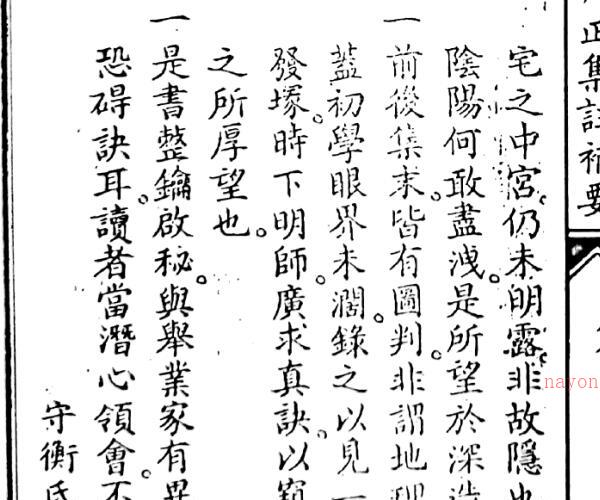 正集註補要
宅之中宮。仍未明露。非故隱
陰陽何敢盡洩。是所望於深造
一前後集末。皆有圖判。非謂地理
蓋初學眼界未濶。錄之以見一
發塚。時下明師。廣求真訣。以窺
之所厚望也。
一是書整鑰啟秘。與舉業家有異
恐碍訣耳。讀者當潛心領會。不
守衡氏
nayon